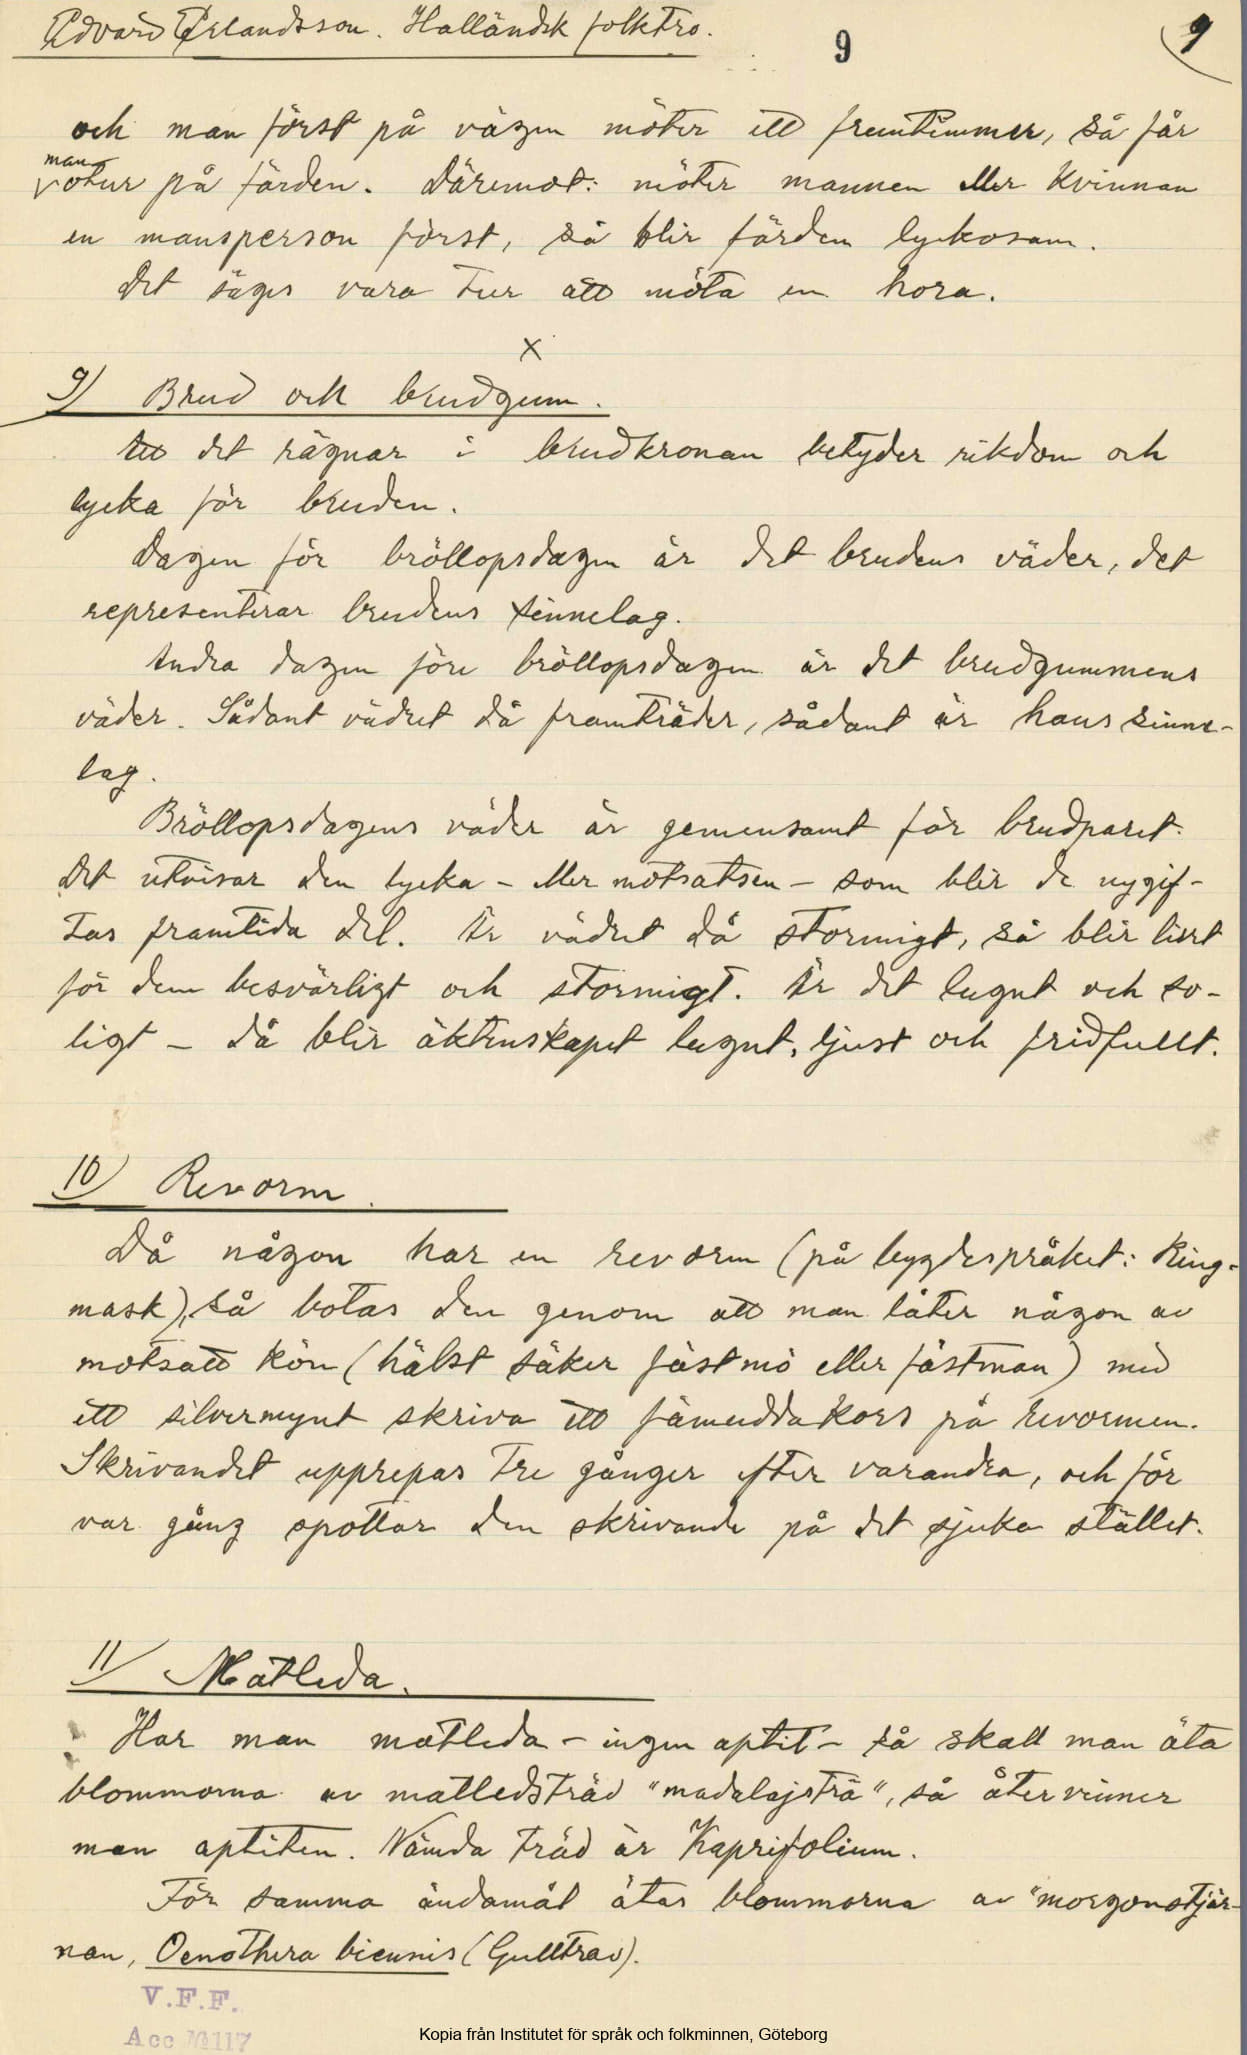 Edvard Erlandsson. Halländsk folktro.
9
9
och man först på vägen möter ett fruntimmer, så får
man
votur på färden. Däremot: möter mannen eller kvinnan
en mansperson först, så blir färden lyckosam.
Det säges vara tur att möta en hora.
x
9) Brud och brudgum.
Att det rägnar i brudkronan betyder rikdom och
lycka för bruden.
Dagen för bröllopsdagen är det brudens väder, det
representerar brudens sinnelag.
Andra dagen före bröllopsdagen är det brudgummens
väder. Sådant vädret då framträder, sådant är hans sinne-
lag.
Bröllopsdagens väder är gemensamt för brudparet.
Det utvisar den lycka – eller motsatsen – som blir de nygif-
tas framtida del. Är vädret då stormigt, så blir livet
för dem besvärligt och stormigt. Är det lugnt och so-
ligt – då blir äktenskapet lugnt, ljust och fridfullt.
10) Revorm.
Då någon har en revorm (på bygdespråket: Ring-
mask), så botas den genom att man låter någon av
motsatt kön (hälst säker fästmö eller fästman) med
ett silvermynt skriva ett fämuddakors på revormen.
Skrivandet upprepas tre gånger efter varandra, och för
var gång spottar den skrivande på det sjuka stället.
11) Matleda.
Har man matleda – ingen aptit – så skall man äta
blommorna av matledsträd "madalajsträ", så återvinner
man aptiten. Nämda träd är Kaprifolium.
För samma ändamål ätas blommorna av "morgonstjär-
nan, Oenothera biennis (Gulltrav).
V.F.F.
Acc №117
Kopia från Institutet för språk och folkminnen, Göteborg